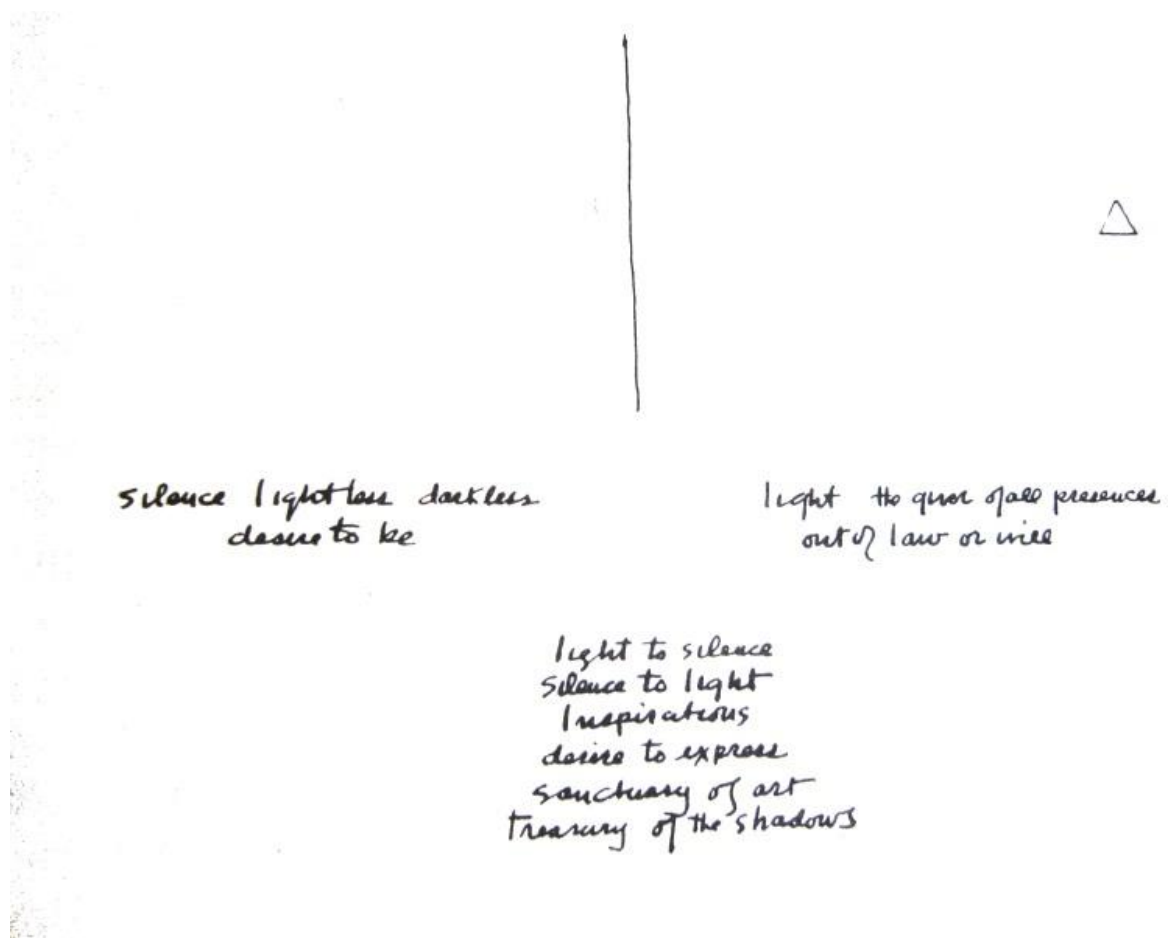 silence lightless darkless
desire to be
light the giver of all presences
out of law or will
light to silence
silence to light
Inspirations
desire to express
sanctuary of art
Treasury of the shadows